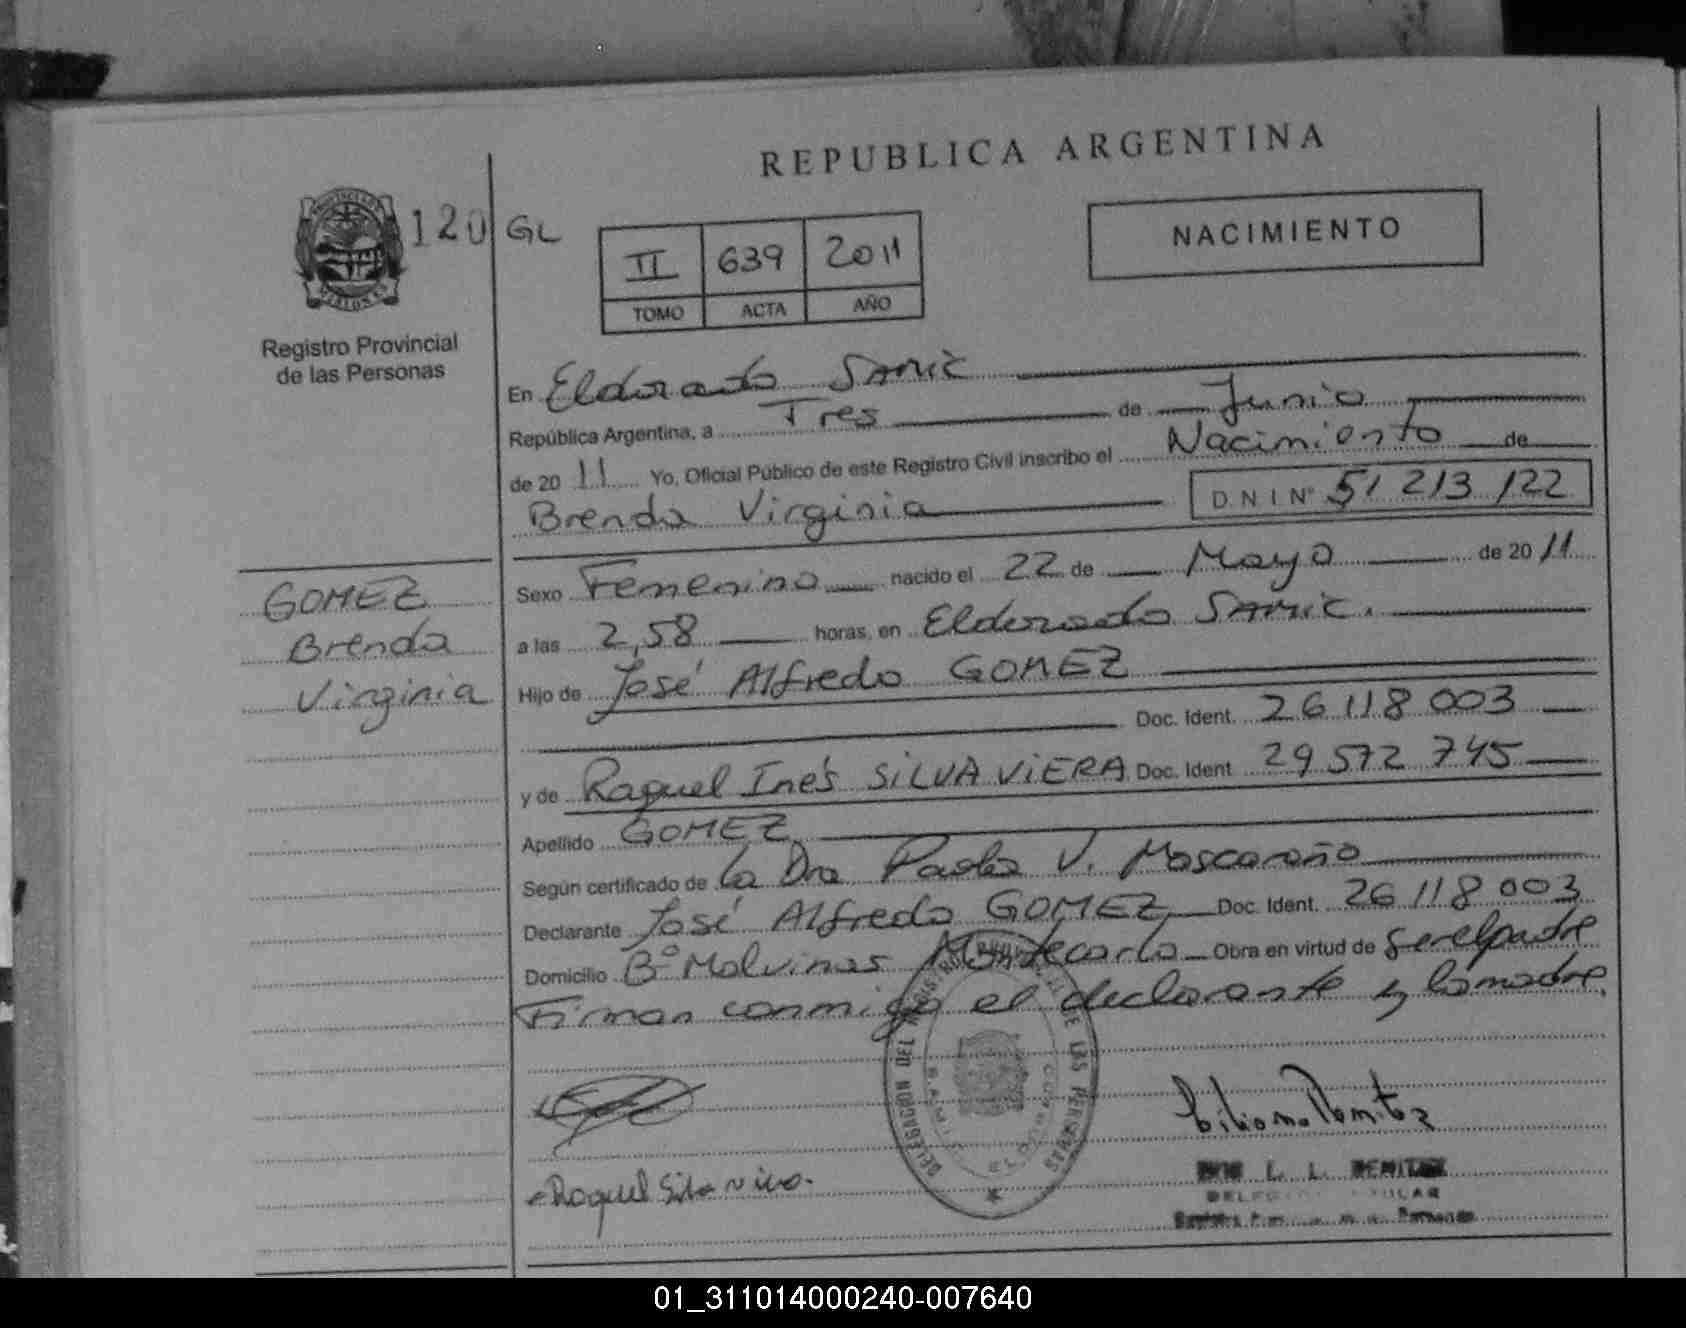 REPUBLICA ARGENTINA
120 GL
II 639 2011
TOMO ACTA AÑO
NACIMIENTO
Registro Provincial
de las Personas
En Eldorado SAMIC
República Argentina, a Tres de Junio
de 20 11 Yo, Oficial Público de este Registro Civil inscribo el Nacimiento de
Brenda Virginia D.N.I Nº 51 213 122
GOMEZ
Brenda
Virginia
Sexo Femenino nacido el 22 de Mayo de 20 11
a las 2,58 horas, en Eldorado SAMIC.
Hijo de José Alfredo GOMEZ
Doc. Ident. 26 118 003
y de Raquel Inés SILVA VIERA Doc. Ident 29 572 745
Apellido GOMEZ
Según certificado de la Dra Paola V.
Declarante José Alfredo GOMEZ Doc. Ident. 26 118 003
Domicilio Bº Malvinas Montecarlo Obra en virtud de ser el padre
Firman conmigo el declarante y la madre.
DELEGACION DEL REGISTRO PROVINCIAL DE LAS PERSONAS
Liliana Benitez
Raquel Silva
L. L. BENITEZ
01_311014000240-007640